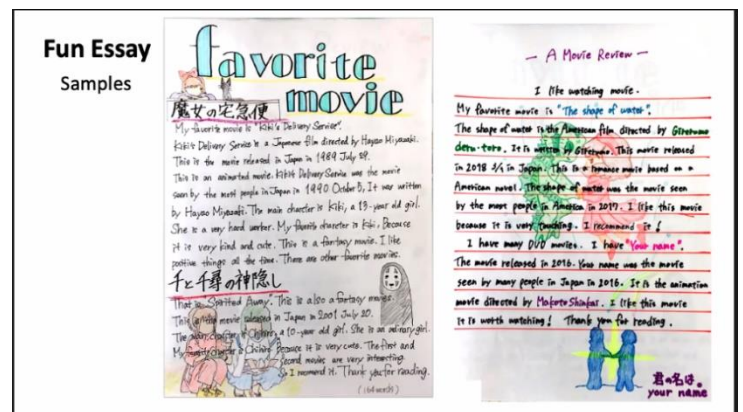 Fun Essay
Samples
favorite
movie
魔女の宅急便
My favorite movie is "Kiki's Delivery Service".
Kiki's Delivery Service is a Japanese film directed by Hayao Miyazaki.
This is the movie released in Japan in 1989 July 29.
This is an animated movie. Kiki's Delivery Service was the movie
seen by the most people in Japan in 1990 October 5, It was written
by Hayao Miyazaki. The main charcter is Kiki, a 13-year old girl.
She is a very hard worker. My favorite charcter is Kiki, Because
it is very kind and cute. This is a fantasy movie. I like
positive things all the time. There are other favorite movies.
千と千尋の神隠し
That is "Spirited Away". This is also a fantasy movies.
This is the movie released in Japan in 2001 July 20.
The main charcter is Chihiro, a 10-year old girl. She is an ordinary girl.
My favorite charcter is Chihiro because it is very cute. The first and
second movies are very interesting.
So I recomend it. Thank you for reading.
(164words)
- A Movie Review -
I like watching movie.
My favorite movie is "The shape of water".
The shape of water is the American film directed by
It is written by This movie released
in 2018 3/1 in Japan. This is a romance movie based on a
American novel. The shape of water was the movie seen
by the most people in America in 2017. I like this movie
because it is very touching. I recommend it!
I have many DVD movies. I have "Your name".
The movie released in 2016. Your name was the movie
seen by many people in Japan in 2016. It is the animation
movie directed by Makoto Shinkai. I like this movie
it is worth watching! Thank you for reading.
君の名は。
your name